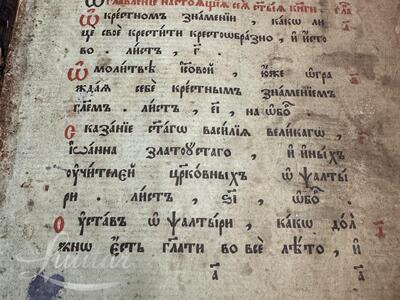 Ѡглавленїе настоѧщїѧ сеѧ ст҃ыѧ книги. глв҃а
Ѡ крⷭ҇тномъ знаменїи, какѡ ли
це своѐ крестити крестоѡбразно, и҆ и҆сто
во. листъ, г҃.
Ѡ моли́твѣ і҆сⷭ҇овой, ю҆́же ѡ҆гра
ждаѧ себѐ крⷭ҇тнымъ зна́менїемъ
гл҃емъ. листъ, є҃і, на ѡ҆бо́.
Сказа́нїе ст҃а́гѡ васи́лїѧ вели́кагѡ,
і҆ѡа́нна златоꙋ́стаго, и҆ и҆ны́хъ
ᲂу҆чи́телей цр҃ко́вныхъ ѡ҆ ѱалты́
ри. листъ, ѕ҃і, ѡ҆бо́.
Оу҆ста́въ ѡ҆ ѱалты́ри, ка́кѡ до́л
жнѡ є҆́сть гл҃ати во всѐ лѣ́то, и҆
а҃ а҃